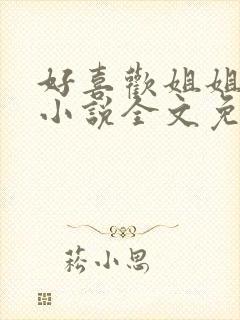 好喜歡姐姐
小說全文免
菘小思